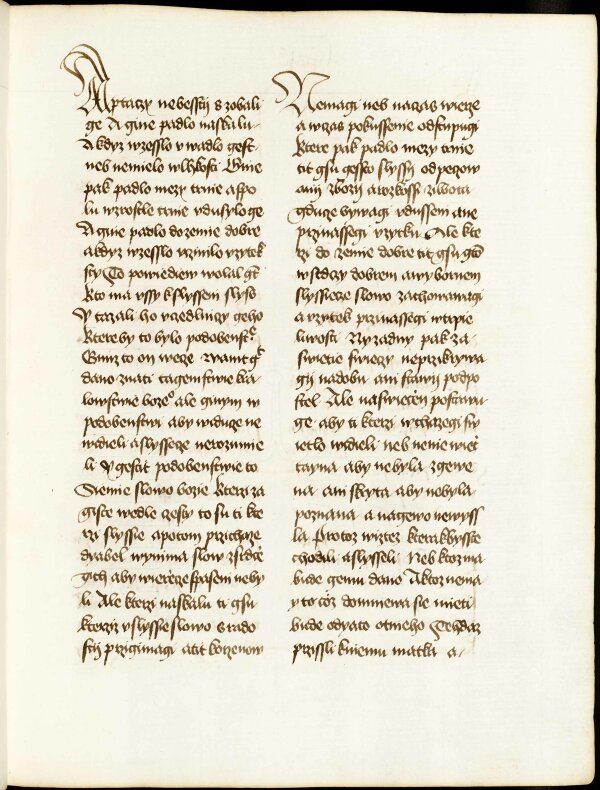 A ptaczy nebesscij s zobali
ge A gine padlo naskalu
A kdyz wzesslo v wadlo gest
neb nemielo wlhkosti Gine
pak padlo mezy trnie a spo
lu wzrostle trnie vdusylo ge
A gine padlo do zemie dobre
a kdyz wzesslo vzinilo vzytek
sty To powiediew wolal gt
Kto ma vssy k slyssem slyss
Y tazali ho vczedlnicy geho
Ktere by to bylo podobenst
Gimz to on wece Wamt gt
dano znati tagemstwie kra
lowstwie bozeo ale ginym w
podobenstwi aby widuce ne
widieli a slyssece nerozumie
li Y gestit podobenstwie to
Siemie slowo bozie Kterzi za
giste wedle cesty to su ti kte
rzi slyssie a potom przichaze
dyabel wynima slow z srdce
gich aby wierzece spasem neby
li Ale kterzi naskalu ti gsu
kterziz vslyssie slowo s rado
stij przigimagi a tit korzenow
Nemagi neb na czas wierze
a w czas pokussenie odstupugi
Ktere pak padlo mezy trnie
tit gsu gessto slyssij od peczow
anij zbozij a rozkossi ziwota
gduce bywagi vdussem a ne
przinassegi vzytku Ale kte
rzi do zemie dobre tit gsu gto
w srdczy dobrem a wybornem
slyssiece slowo zachowawagi
a vzytek przinassegi w trpie
liwosti Ny zadny pak za
swietie swiecy neprzikrywa
gij nadobu ani stawij podpo
stel Ale na swiecen postawu
ge aby ti kterzi wchazegi sw
ietlo widieli neb nenie wiec
tayna aby nebyla zgewe
na ani skryta aby nebyla
poznana a nagewo newyss
la Protoz wizte kterak byste
chodali a slysseli Neb ktoz ma
bude gemu dano A ktoz nema
y to coz domniewa sie mieti
bude odyato otneho Tehdaz
przissli k niemu matka a